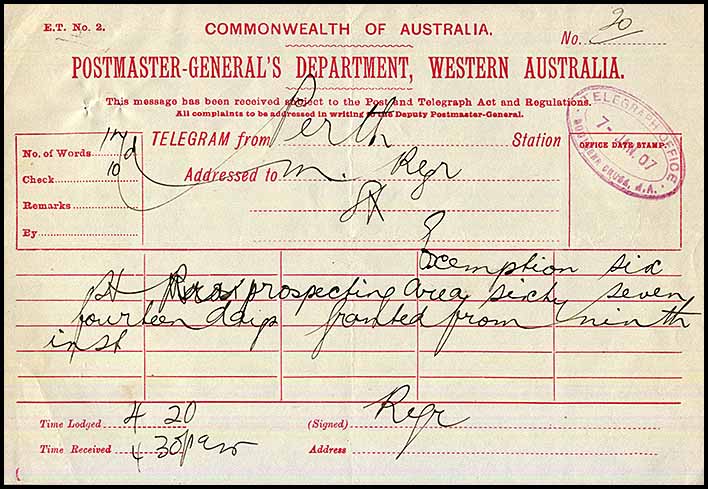 E.T. No. 2.
COMMONWEALTH OF AUSTRALIA.
No. 20
POSTMASTER-GENERAL'S DEPARTMENT, WESTERN AUSTRALIA.
This message has been received subject to the Post and Telegraph Act and Regulations.
All complaints to be addressed in writing to the Deputy Postmaster-General.
TELEGRAM from Perth Station
Addressed to m. Regr
SX
No. of Words
Check 10
Remarks
By
OFFICE DATE STAMP.
TELEGRAPH OFFICE
7-JAN.07
SOUTHERN CROSS, W.A.
Exemption six
prospecting area sixty seven
fourteen days granted from ninth
inst
Time Lodged 4 20
Time Received 4 30 pm
(Signed) Regr
Address